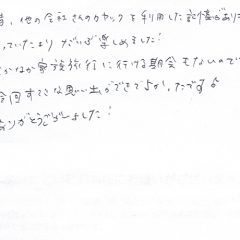 、他の会社さんのカヤックを利用した記憶があり
っていたより だいぶ楽しめました!
なかなか家族旅行に行ける機会もないので
今回すてきな思い出ができてよかったです♪
ありがとうございました!